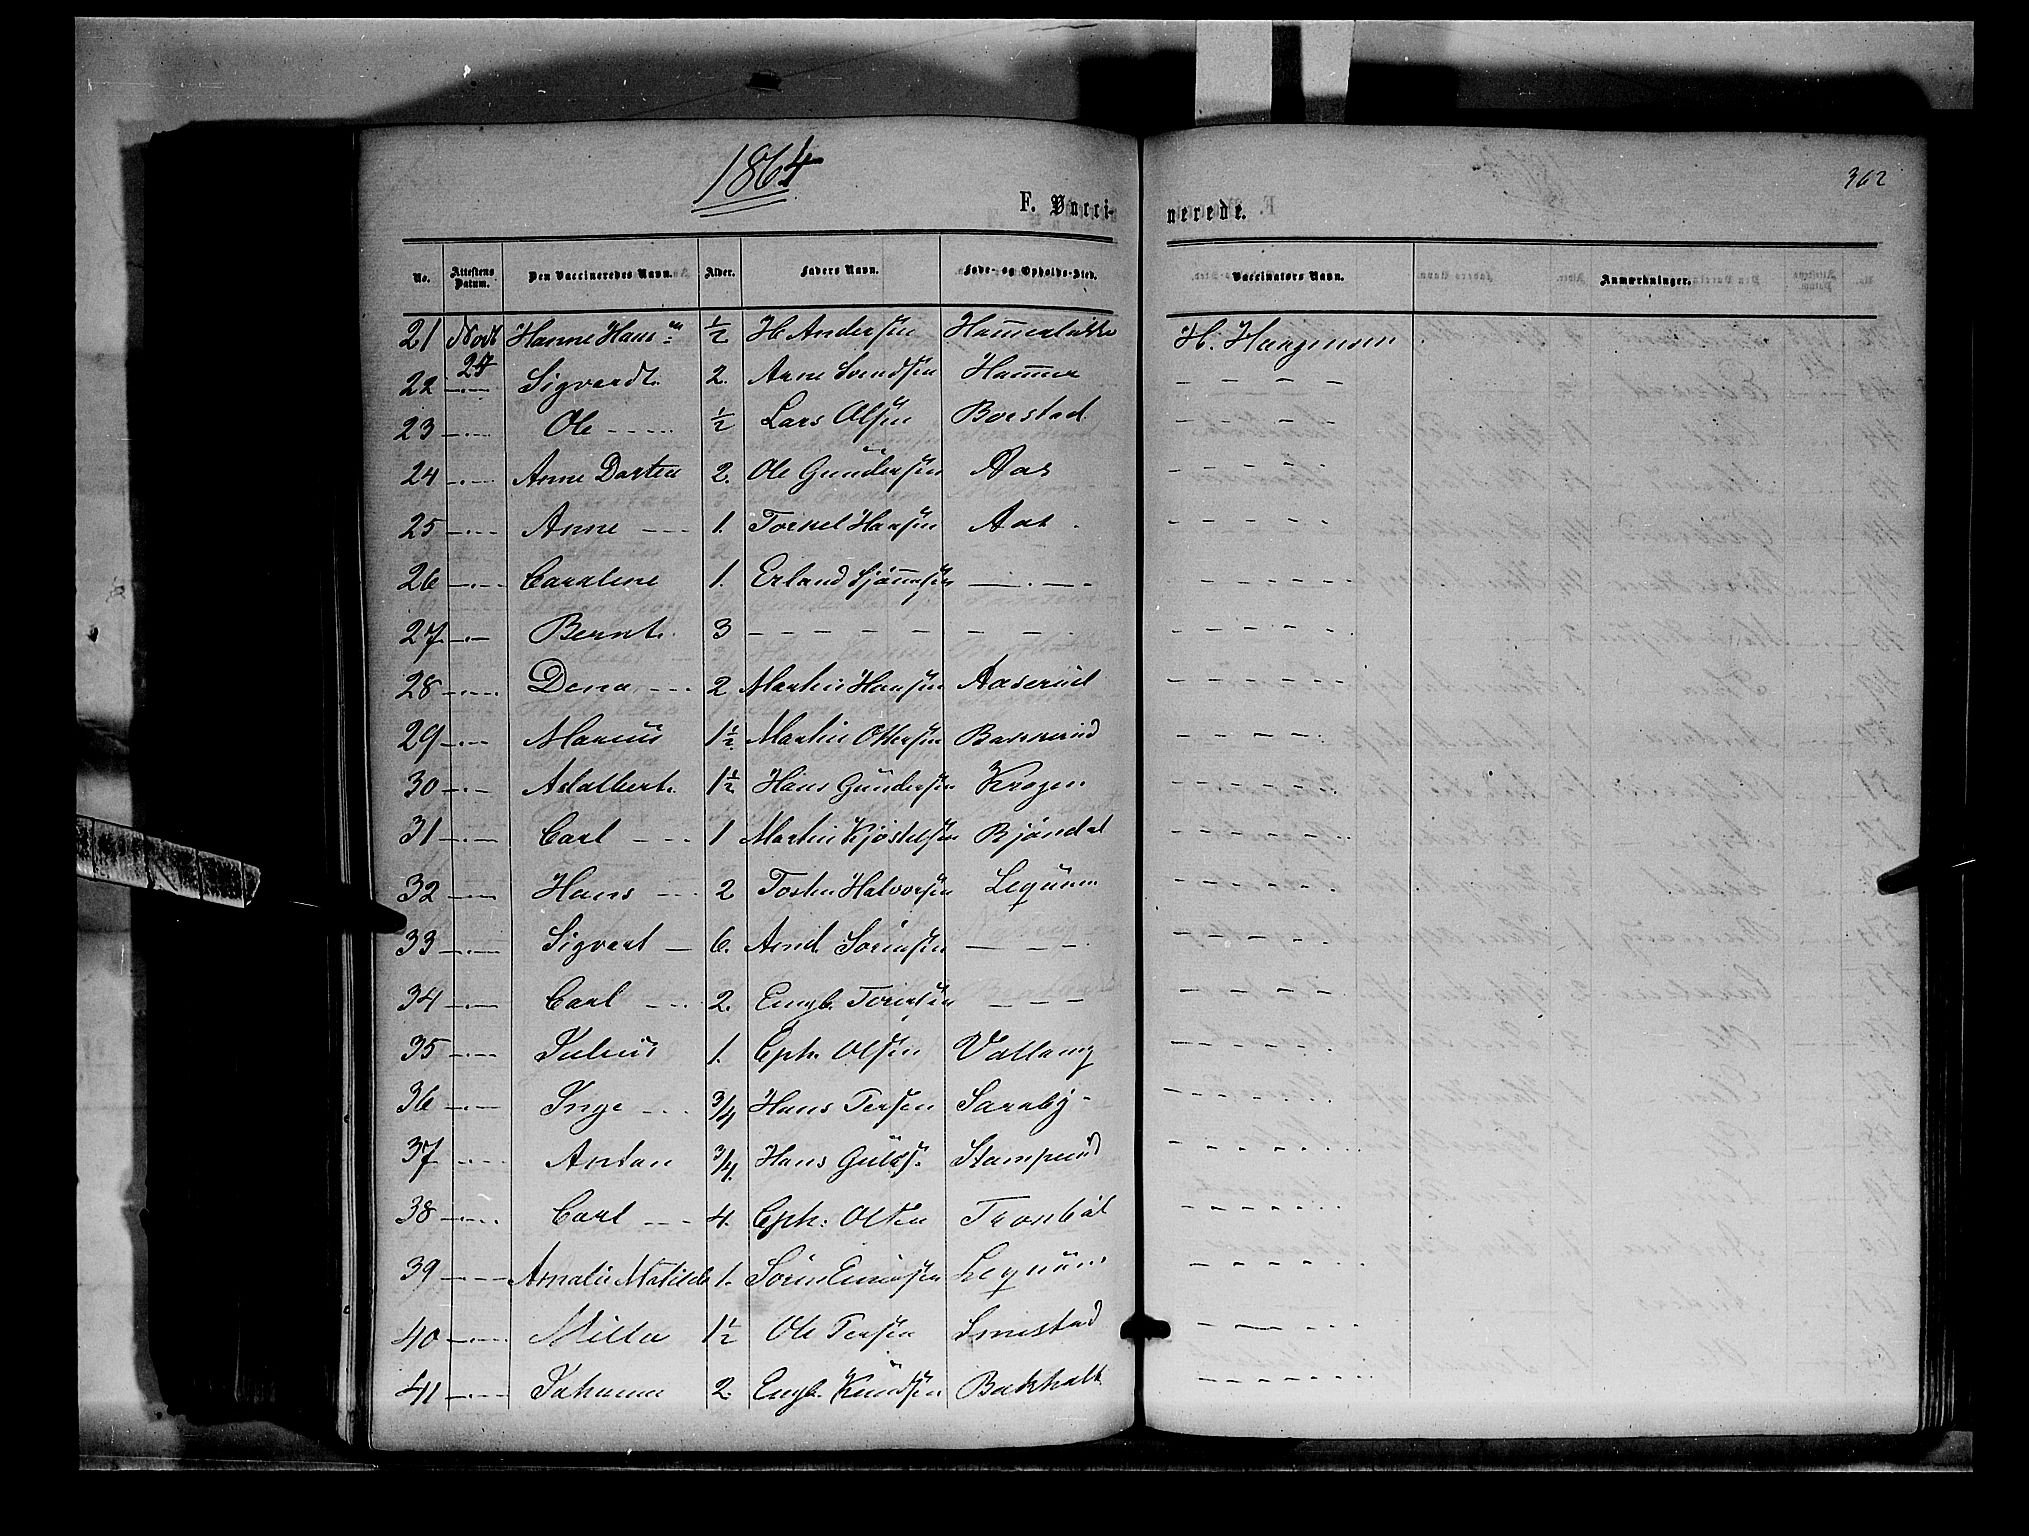 1864
362
F. Vacci-
nerede.
No. Attestens Datum. Den Vaccineredes Navn. Alder. Faders Navn. Føde- og Opholds-Sted. Vaccinators Navn. Anmærkninger.
21 Novb 24 Hanne Hans 1/2 H. Andersen Hammerløkke H. Haagensen
22 -.- Sigvardt 2. Arne Svendsen Hammer - - - -
23 -.- Ole - - - 1/2 Lars Olsen Borstad - - - -
24 -.- Anne Dortea 2. Ole Gundersen Aas - - - -
25 -.- Anne - - - 1. Torkel Hansen Aas - - - -
26 -.- Caroline 1. Erland -.- - - - -
27 -.- Bernt. 3 - - - - - - - - - -
28 -.- Dena - - - 2 Martin Hansen Aaserud - - - -
29 -.- Marius 1 1/2 Martin Ottersen Bakkerud - - - -
30 -.- Adalbert. 1 1/2 Hans Gundersen Krogen - - - -
31 -.- Carl - - - 1 Martin Kjøstelsen Bjøndal - - - -
32 -.- Hans - - - 2 Tosten Halvorsen - - - -
33 -.- Sigvart - 6. Arnd. Sørensen -.- - - - -
34 -.- Carl - - - 2. Engb. - - - - - - -
35 -.- Julius 1. Eph. Olsen - - - -
36 -.- Inge - - - 3/4 Hans Tersen Saxeby - - - -
37 -.- Anton 3/4. Hans Stamperud - - - -
38 -.- Carl - - - 4. Eph: Olsen Tronbøl - - - -
39 -.- Amalie Matilde 1. Søren - - - -
40 -.- Milla 1 1/2 Ole Tersen Smestad - - - -
41 -.- Johanna 2. Engb. Knudsen Bakhalt - - - -